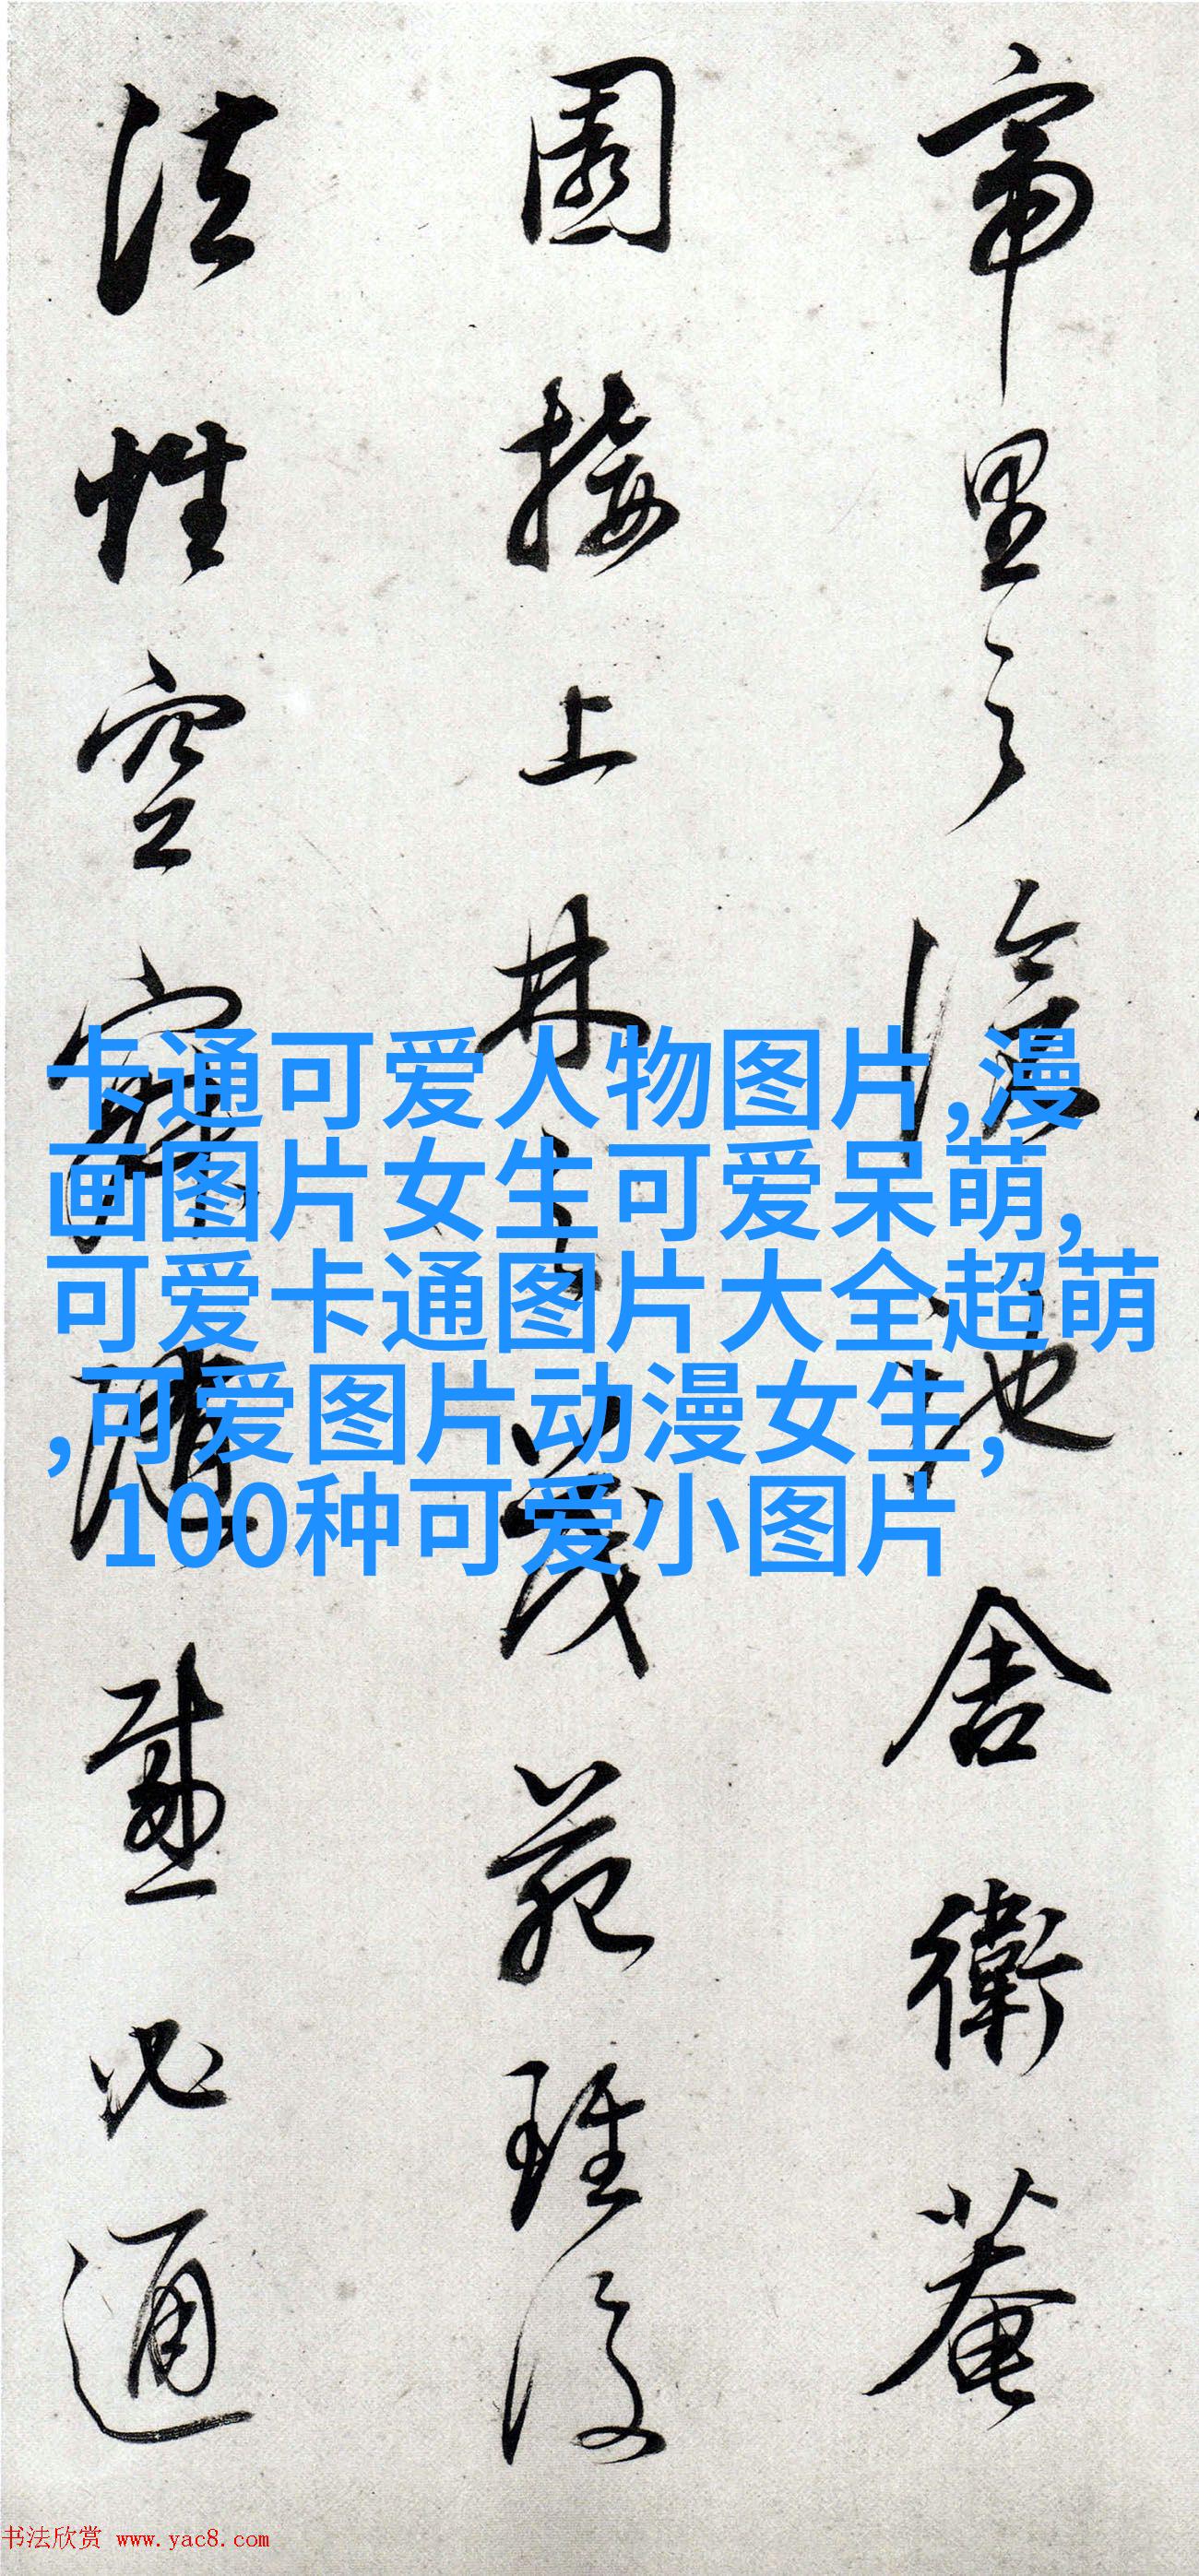 帝里之滄池舍衛菴
園接上林之茂苑雖復
法性空寂隨感必通
卡通可爱人物图片,漫
画图片女生可爱呆萌,
可爱卡通图片大全超萌
,可爱图片动漫女生,
100种可爱小图片
书法欣赏 www.yac8.com